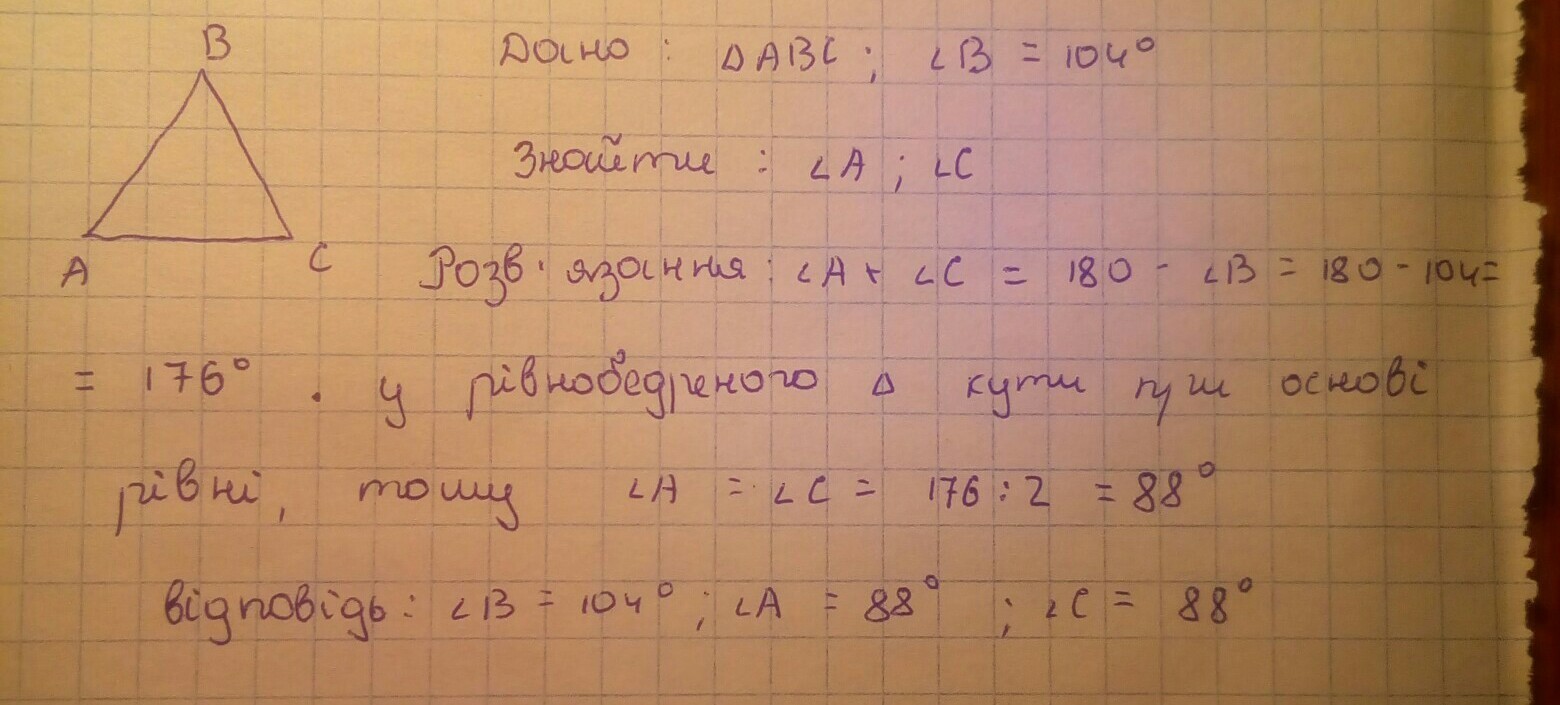 B
Дано : ΔABC ; ∠B = 104°
Знайти : ∠A ; ∠C
A
C
Розв'язання : ∠A + ∠C = 180 - ∠B = 180 - 104 =
= 176° . У рівнобедреного Δ кути при основі
рівні, тому ∠A = ∠C = 176 : 2 = 88°
відповідь : ∠B = 104° ; ∠A = 88° ; ∠C = 88°